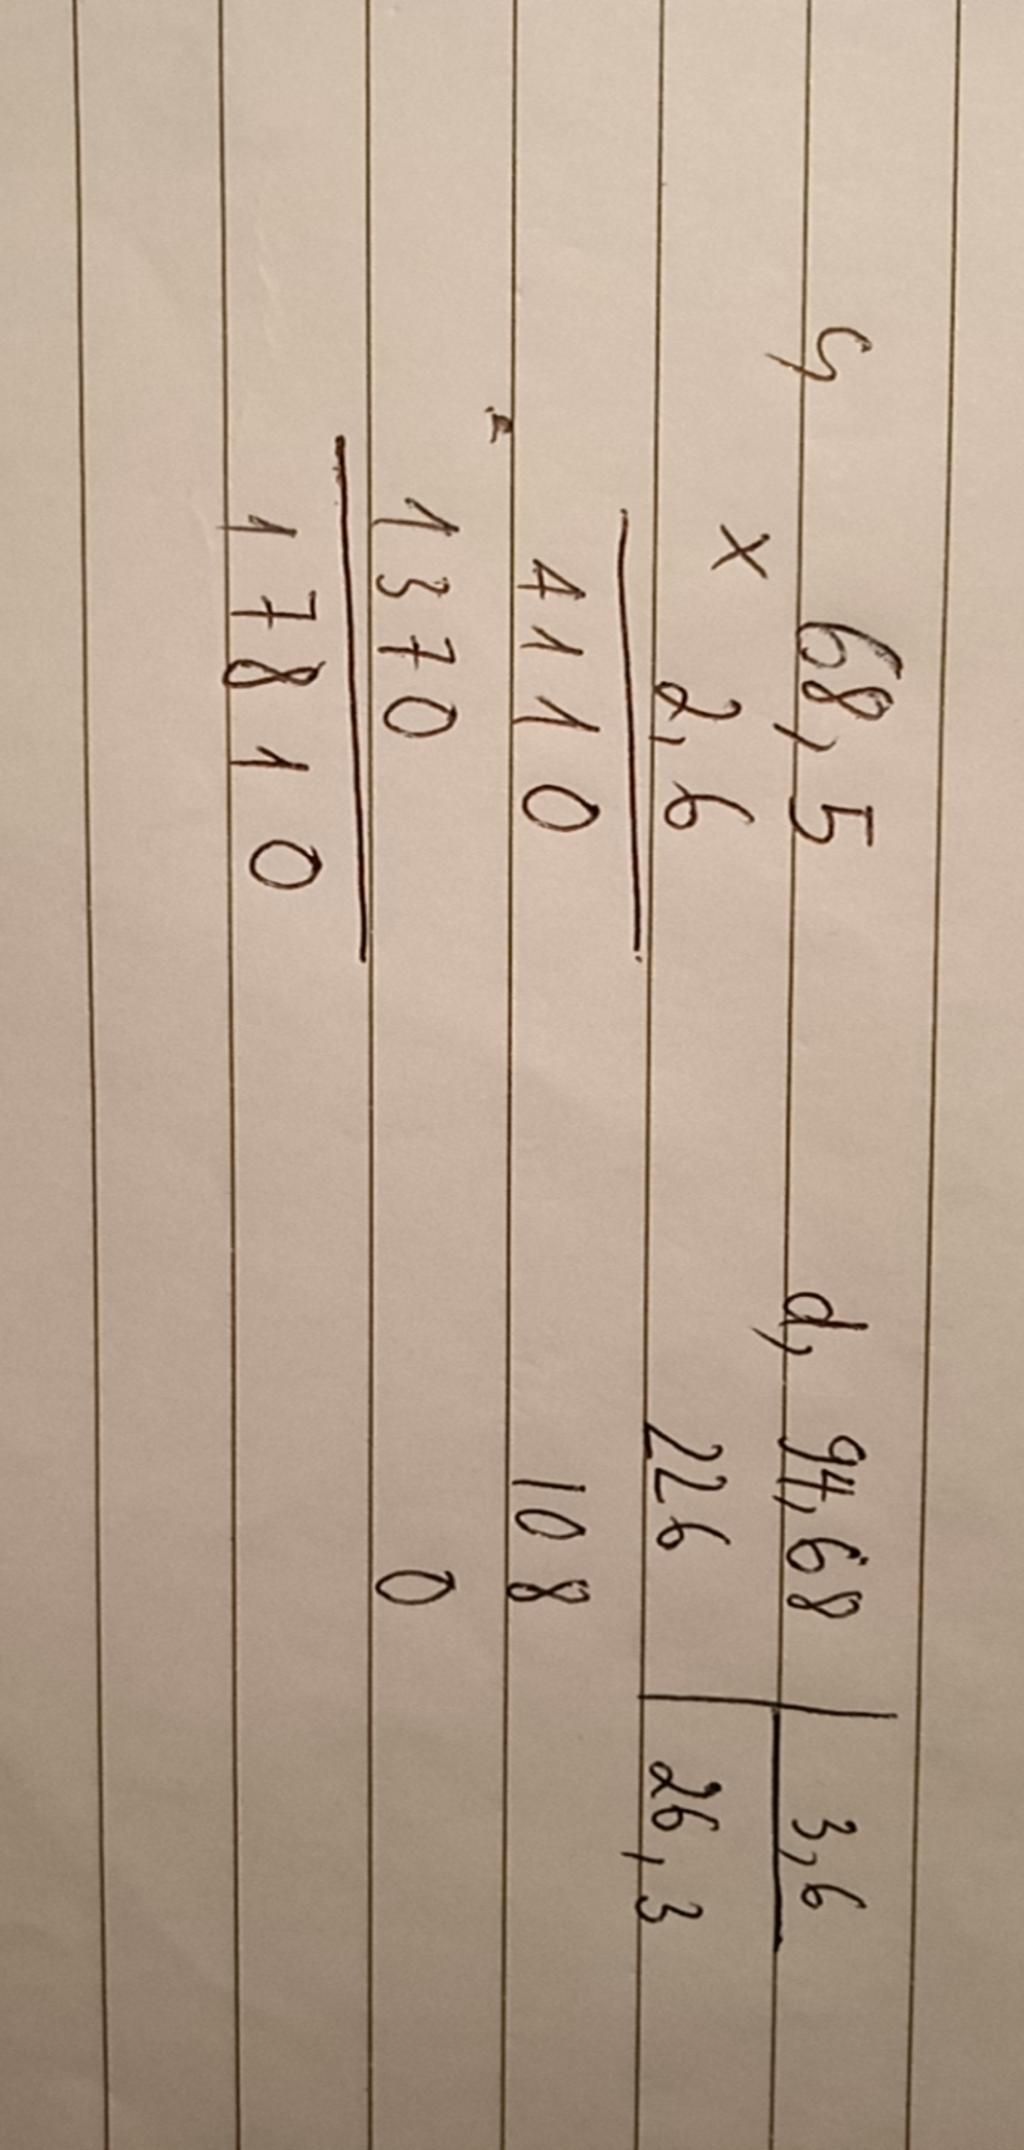 c,
68,5
x
2,6
4110
1370
17810
d, 94,68 | 3,6
226 | 26,3
108
0